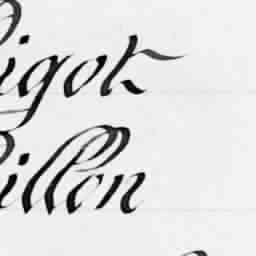 igot
illon